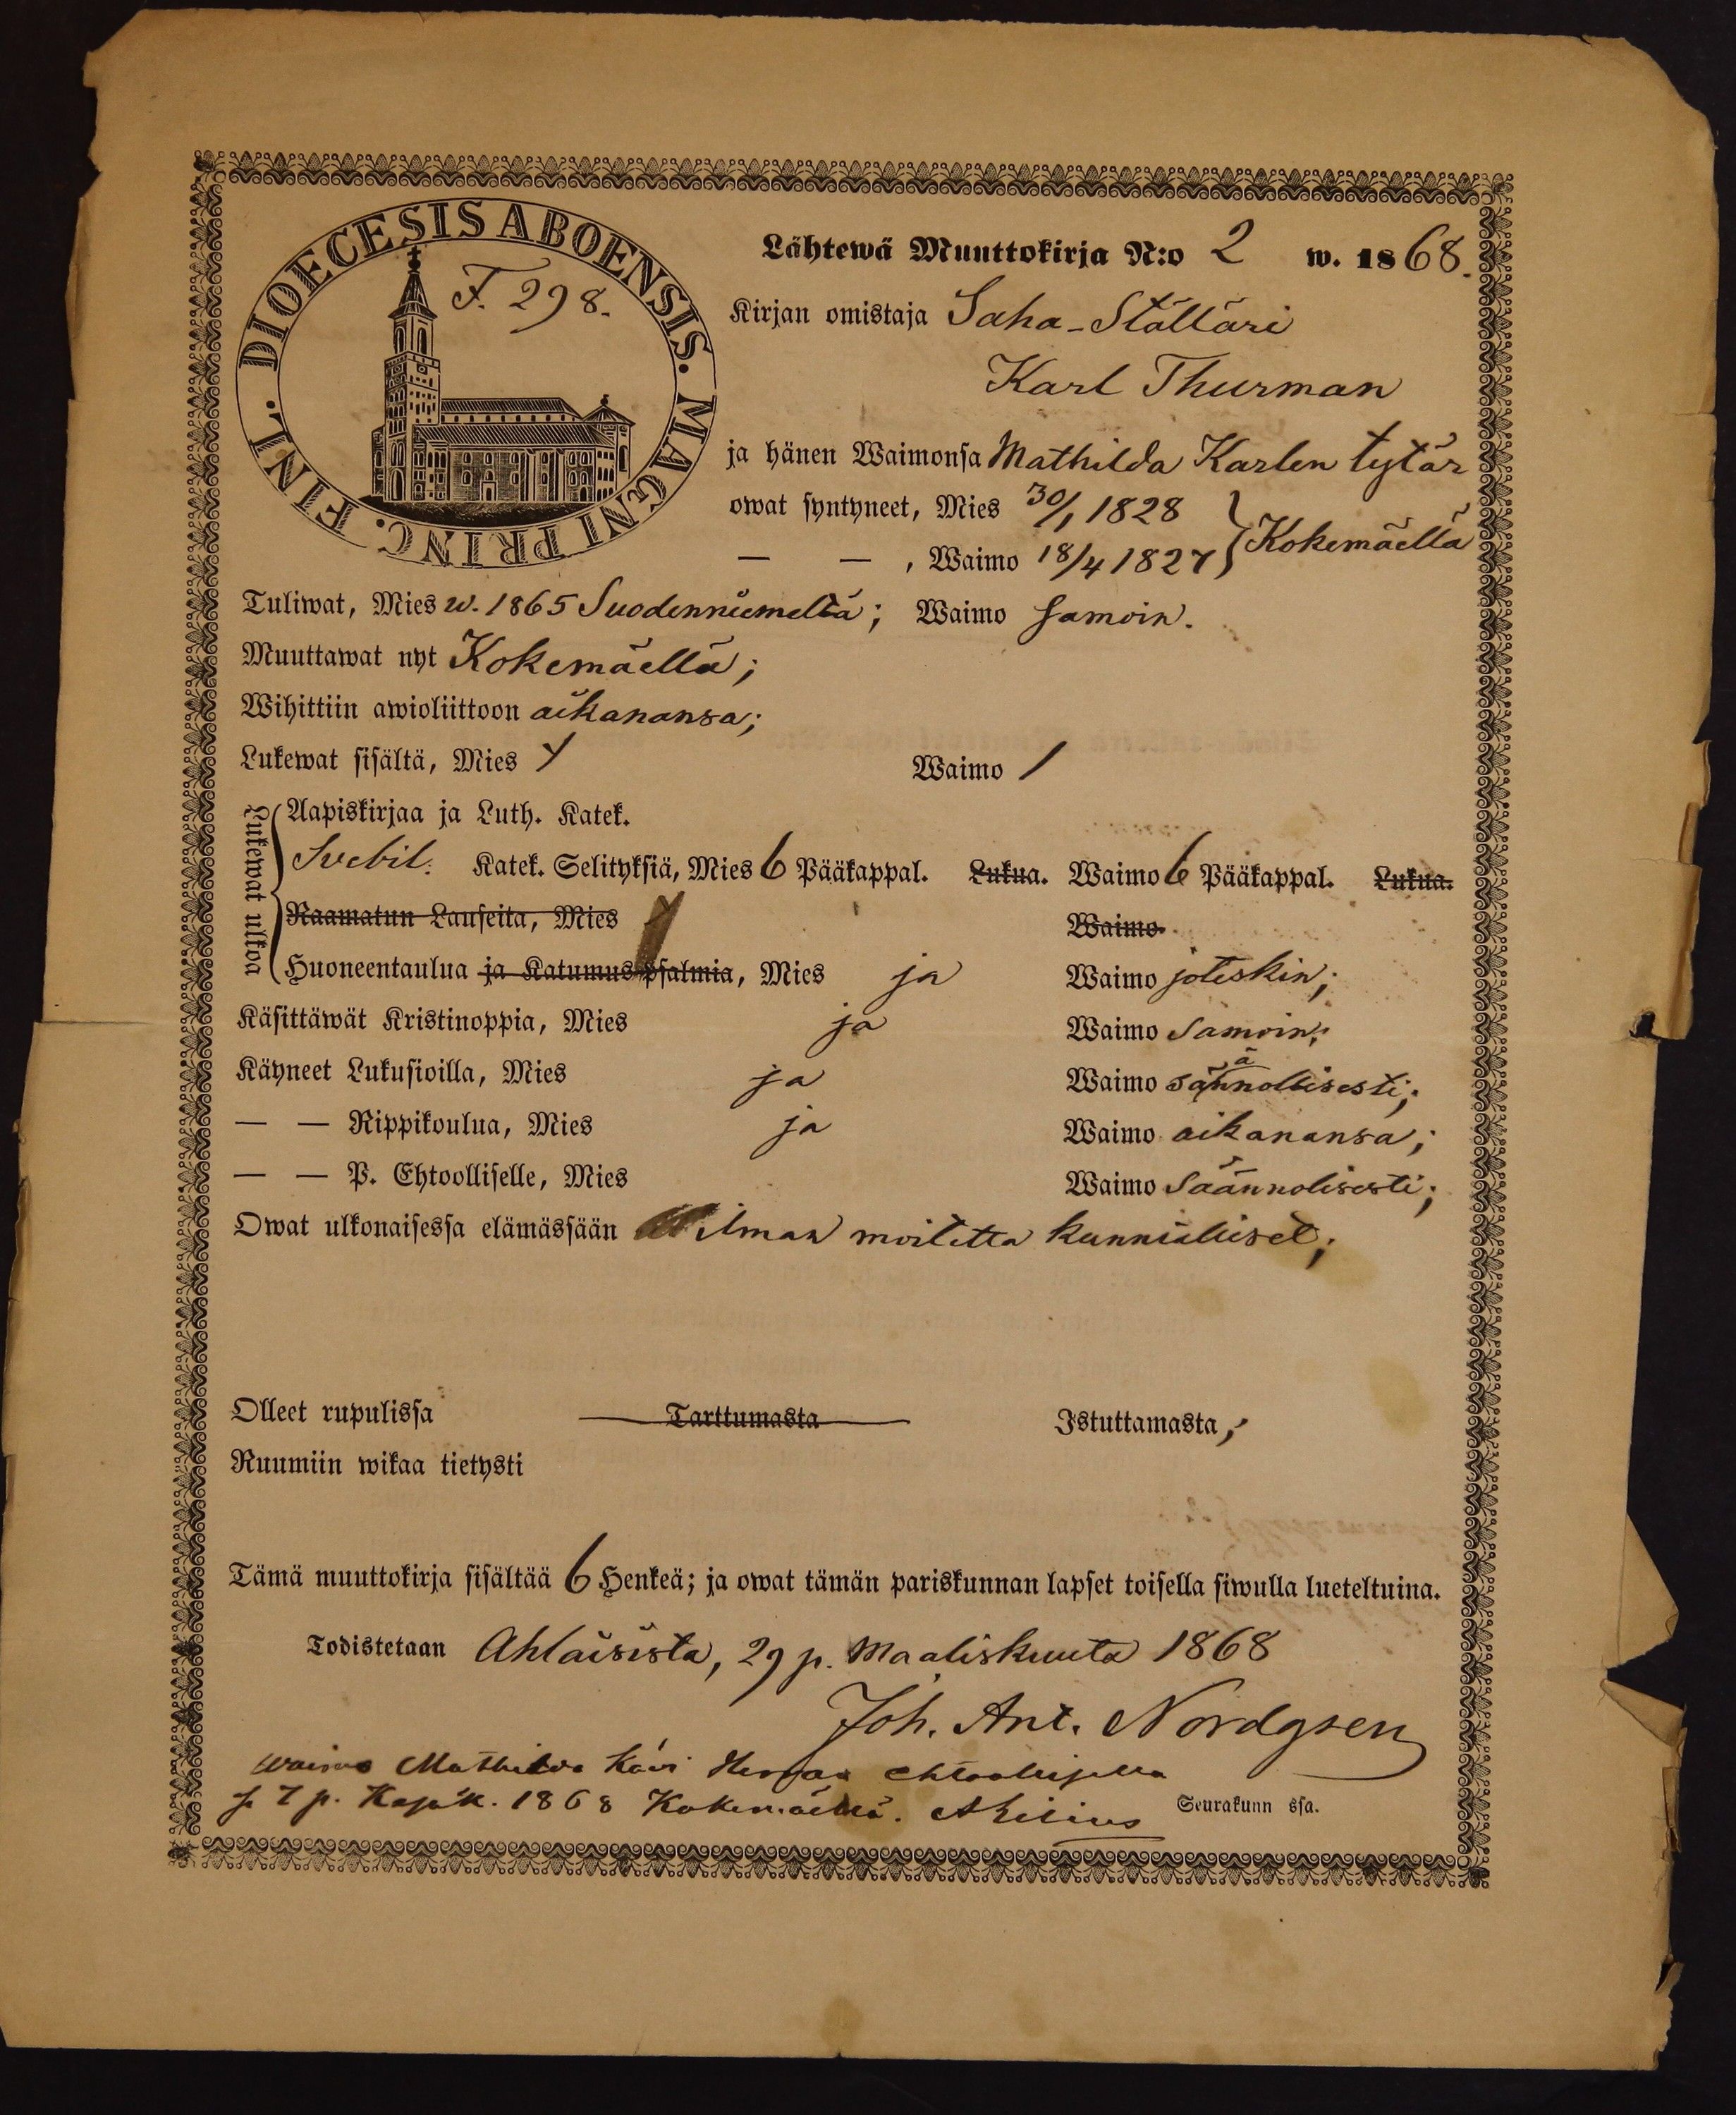 DIOECESIS ABOENSIS. MAGNI PRINC. FINL.
F. 298.
Lähtewä Muuttokirja N:o 2 w. 1868.
Kirjan omistaja Saha-Ställäri
Karl Thurman
ja hänen Waimonsa Mathilda Karlen tytär
owat syntyneet, Mies 30/1 1828
— — , Waimo 18/4 1827 } Kokemäellä
Tuliwat, Mies w. 1865 Suodenniemeltä; Waimo samoin.
Muuttawat nyt Kokemäellä;
Wihittiin awioliittoon aikanansa;
Lukewat sisältä, Mies 1 Waimo 1
Lukewat ulkoa
Aapiskirjaa ja Luth. Katek.
Svebil. Katek. Selityksiä, Mies 6 Pääkappal. Lukua. Waimo 6 Pääkappal. Lukua.
Raamatun Lauseita, Mies Waimo
Huoneentaulua ja Katumuspsalmia, Mies ja Waimo joteskin;
Käsittäwät Kristinoppia, Mies ja Waimo samoin;
Käyneet Lukusioilla, Mies ja Waimo säännollisesti;
— — Rippikoulua, Mies ja Waimo aikanansa;
— — P. Ehtoolliselle, Mies Waimo säännolisesti;
Owat ulkonaisessa elämässään ilman moitetta kunnialliset;
Olleet rupulissa Tarttumasta Istuttamasta;
Ruumiin wikaa tietysti
Tämä muuttokirja sisältää 6 Henkeä; ja owat tämän pariskunnan lapset toisella siwulla lueteltuina.
Todistetaan Ahlaisista, 29 p. Maaliskuuta 1868
Joh. Ant. Nordgren
Waimo Mathilda kävi Herran ehtoollisella
7 p. 1868 Kokemäellä.
Seurakunn ssa.